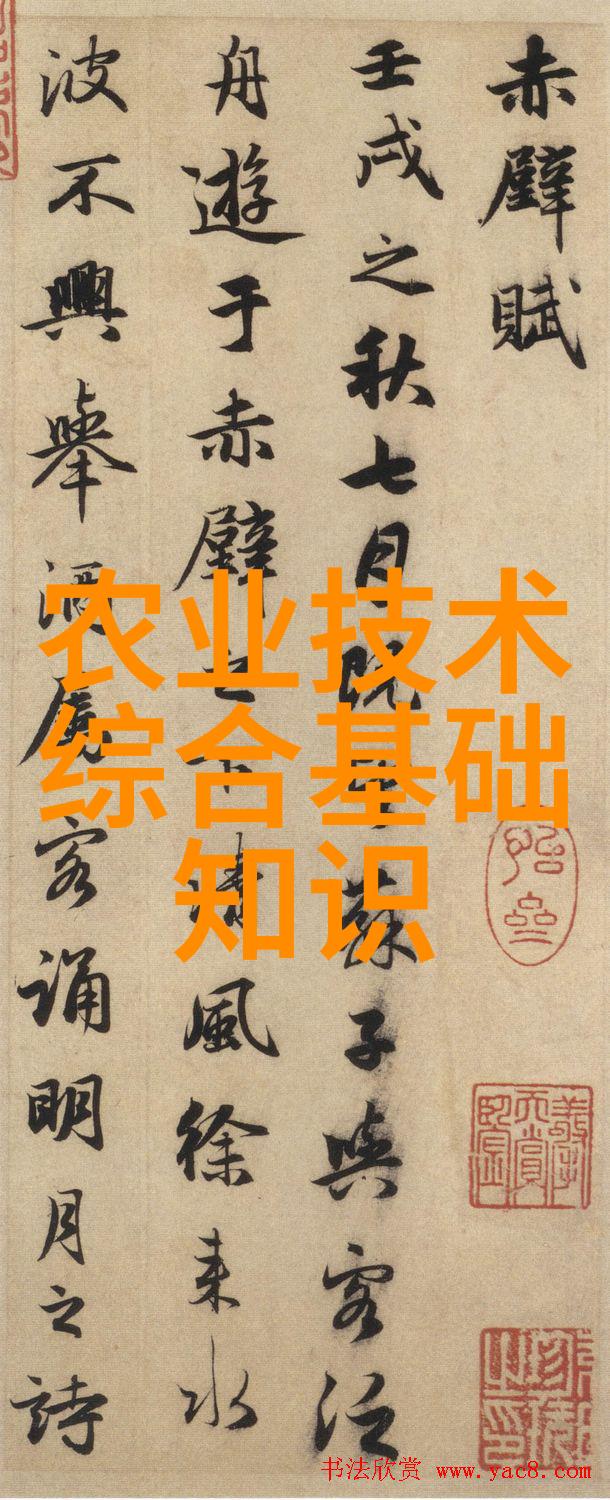 赤壁賦
壬戌之秋七月既望蘇子與客泛
舟遊于赤壁之下清風徐来水
波不興舉酒屬客誦明月之詩
农业技术
综合基础
知识
书法欣赏 www.yac8.com